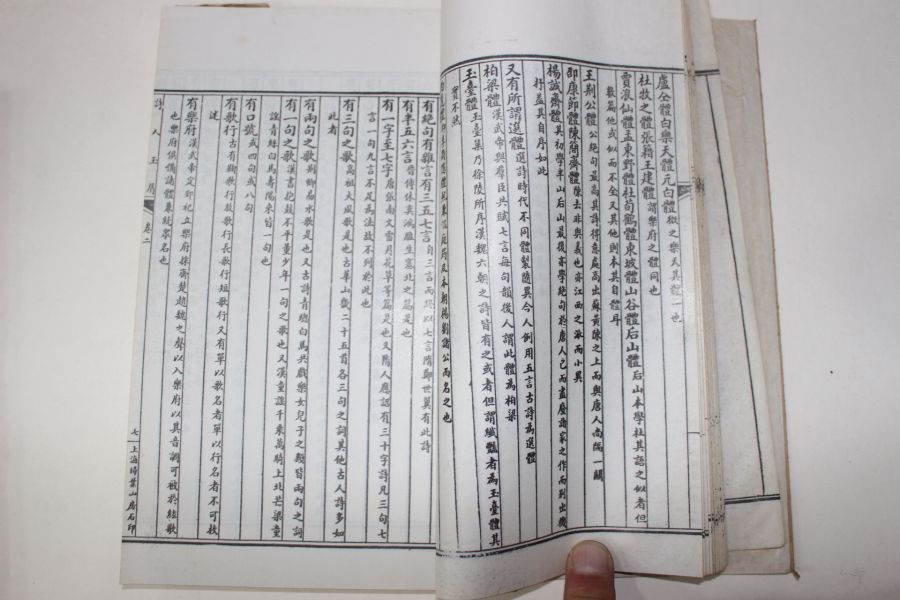 盧仝體白樂天體元白體微之樂天其體一也
杜牧之體張籍王建體謂樂府之體同也
賈浪仙體孟東野體杜荀鶴體東坡體山谷體后山體后山本學杜其語之似者但
數篇他或似而不全又其他則本其自體耳
王荆公體公絕句最高其得意處高出蘇黃陳之上而與唐人尚隔一關
邵康節體陳簡齋體陳去非與義也亦江西之派而小異
楊誠齋體其初學半山后山最後亦學絕句於唐人已而盡廢諸家之作而別出機
杼蓋其自序如此
又有所謂選體選詩時代不同體製隨異今人例用五言古詩為選體
柏梁體漢武帝與羣臣共賦七言每句韻後人謂此體為柏梁
玉臺體玉臺集乃徐陵所序漢魏六朝之詩皆有之或者但謂纖豔者為玉臺體其
實不然
有絕句有雜言有三五七言自三言而終以七言隋鄭世翼有此詩
有半五六言晉傅休奕鴻雁生塞北之篇是也
有一字至七字唐張南史雪月花草等篇是也又隋人應詔有三十字詩凡三句七
言一句九言不足為法故不列於此也
有三句之歌高祖大風歌是也古華山畿二十五首皆三句之詞其他古人詩多如
此者
有兩句之歌荆卿易水歌是也又古詩青驄白馬共戲樂女兒子之類皆兩句之詞
有一句之歌漢書枹鼓不平董少年一句之歌也又漢童謠千乘萬騎上北芒梁童
謠青絲白馬壽陽來皆一句也
有口號或四句或八句
有歌行古有鞠歌行放歌行長歌行短歌行又有單以歌名者單以行名者不可枚
述
有樂府漢武帝定郊祀立樂府採齊楚趙魏之聲以入樂府以其音調可被於絃歌
也樂府俱備諸體兼統眾名也
詩人玉屑 卷二
七 上海掃葉山房石印